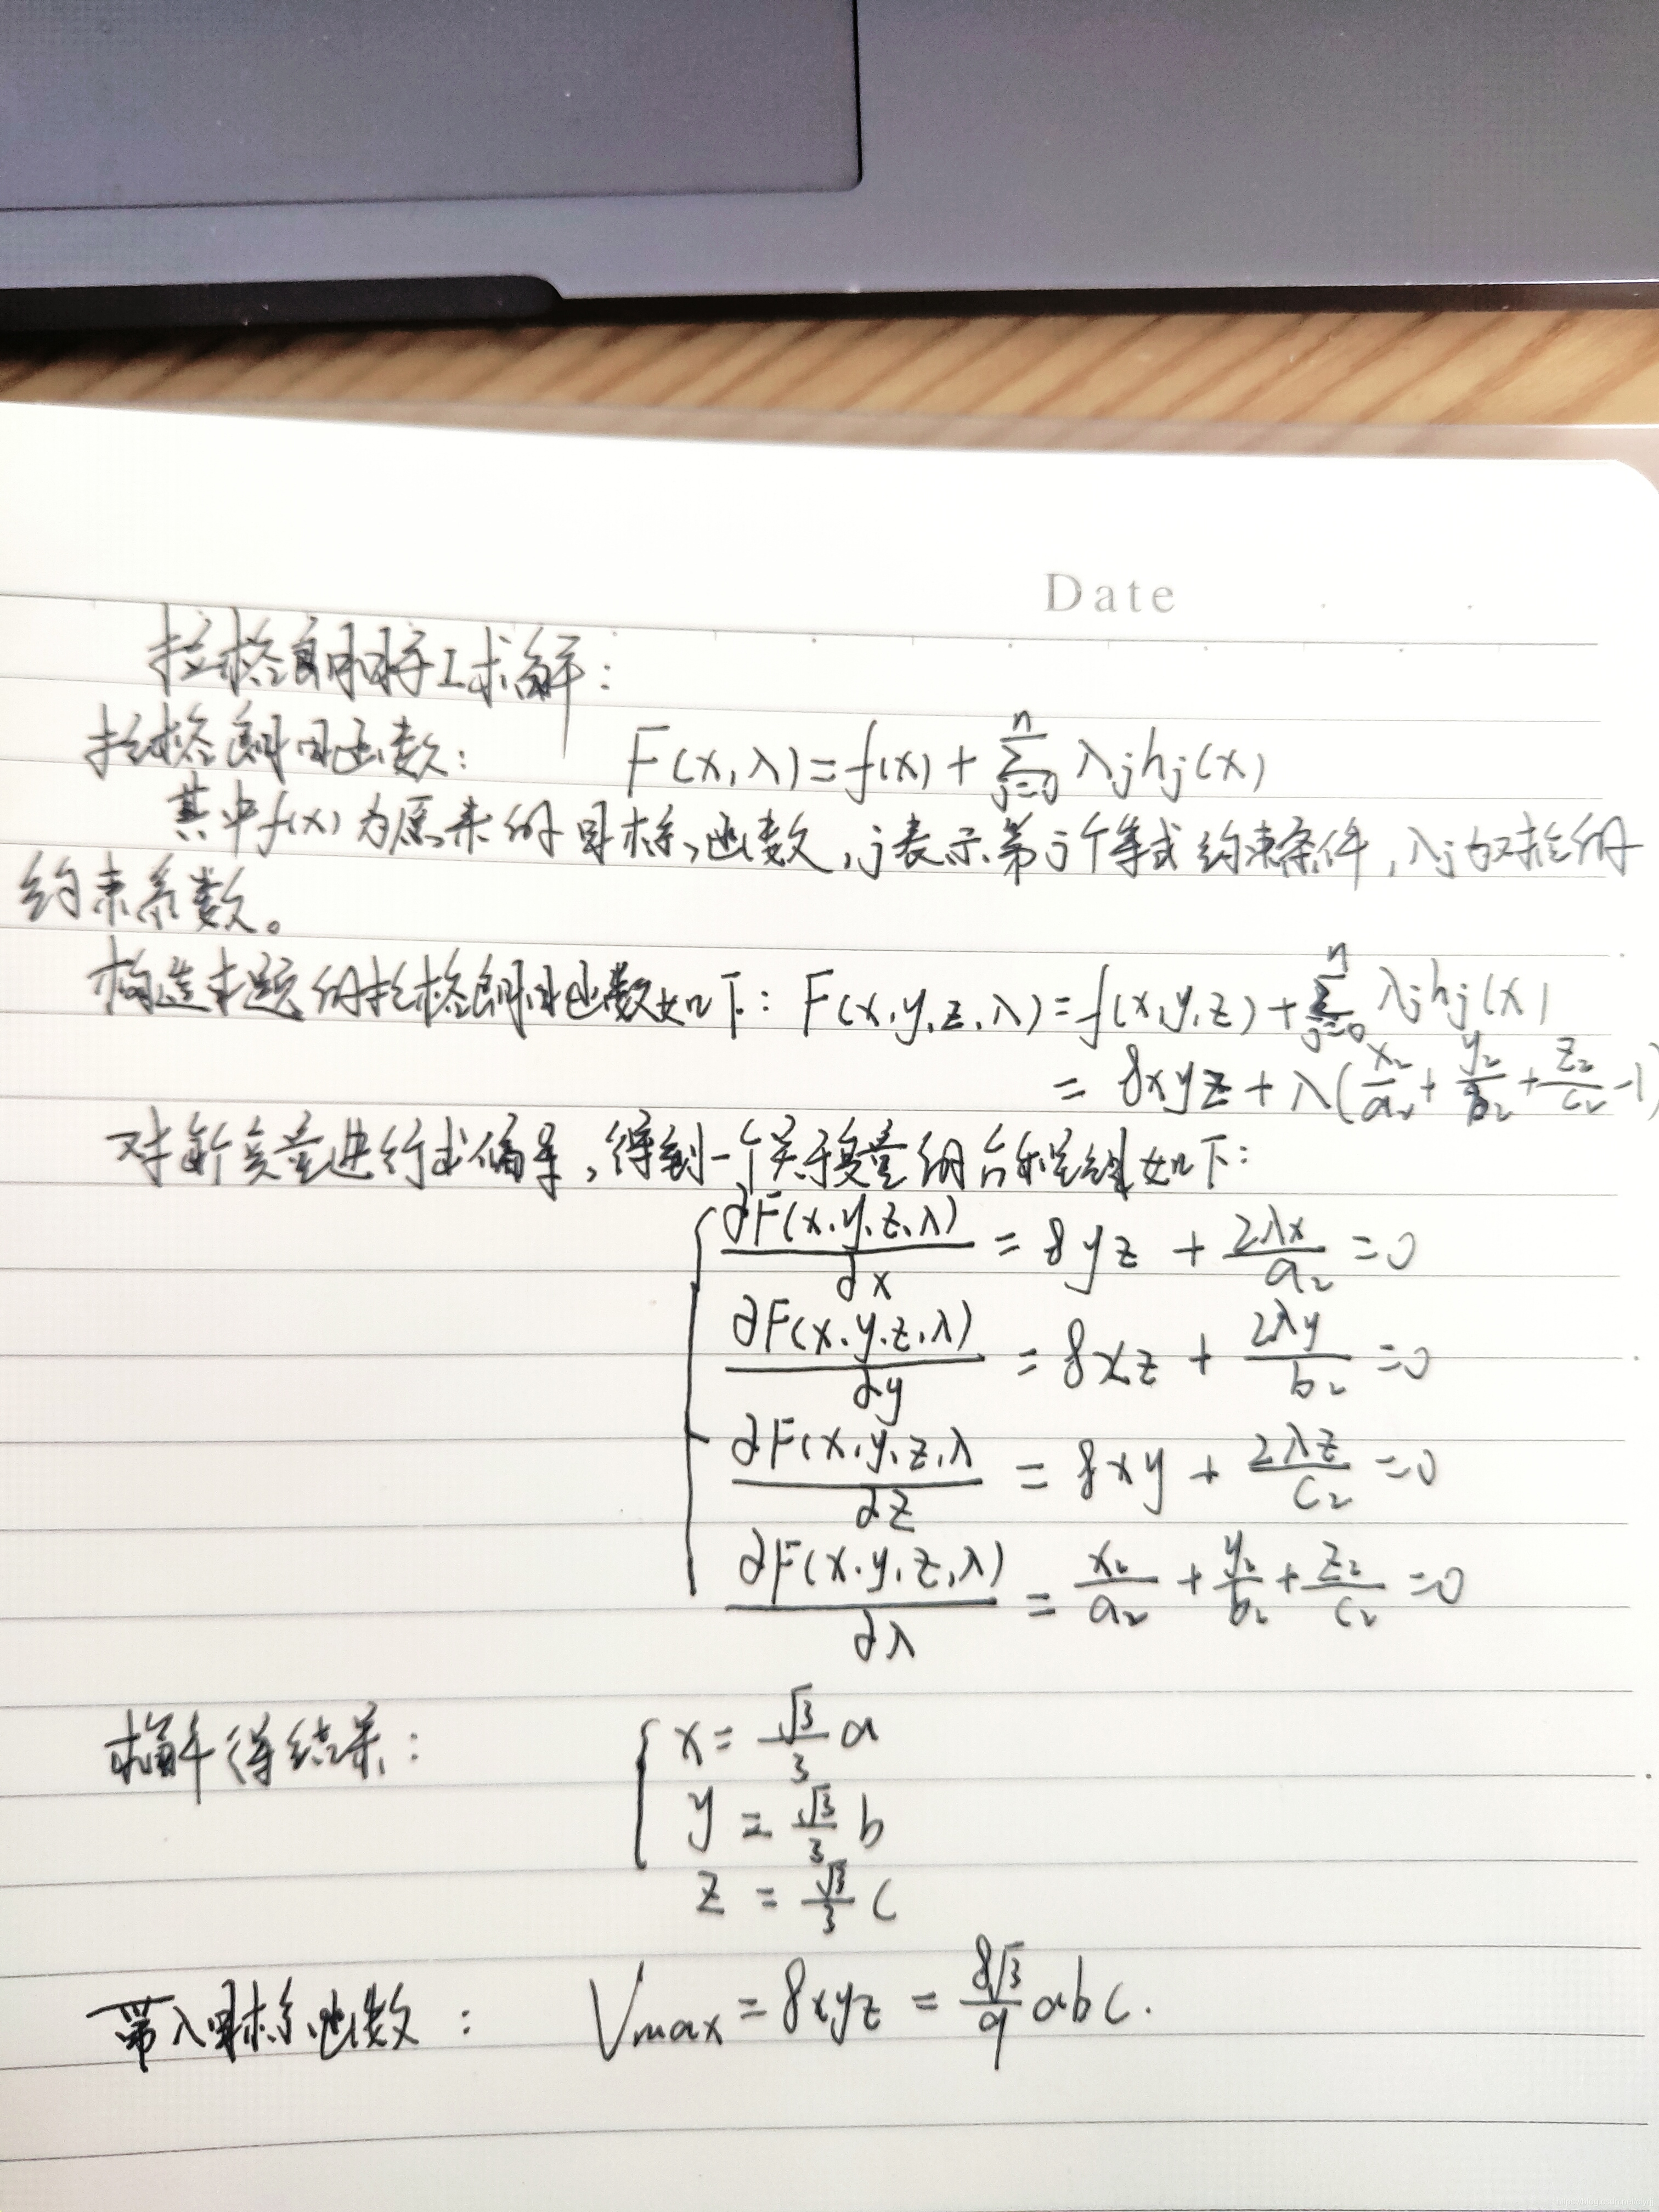 Date
拉格朗日手工求解:
拉格朗日函数: F(x,λ)=f(x)+∑_{j=0}^{n} λjhj(x)
其中f(x)为原来的目标函数,j表示第j个等式约束条件,λj为对应的
约束系数。
构造本题的拉格朗日函数如下: F(x,y,z,λ)=f(x,y,z)+∑_{j=0}^{n} λjhj(x)
= 8xyz+λ(x²/a²+y²/b²+z²/c²-1)
对所变量进行求偏导,得到一个关于变量的方程组如下:
∂F(x,y,z,λ)/∂x = 8yz + 2λx/a² =0
∂F(x,y,z,λ)/∂y = 8xz + 2λy/b² =0
∂F(x,y,z,λ/∂z = 8xy + 2λz/c² =0
∂F(x,y,z,λ)/∂λ = x²/a² + y²/b² + z²/c² =0
求解得结果: x= √3/3 a
y = √3/3 b
z = √3/3 c
带入目标函数: Vmax = 8xyz = 8√3/9 abc.